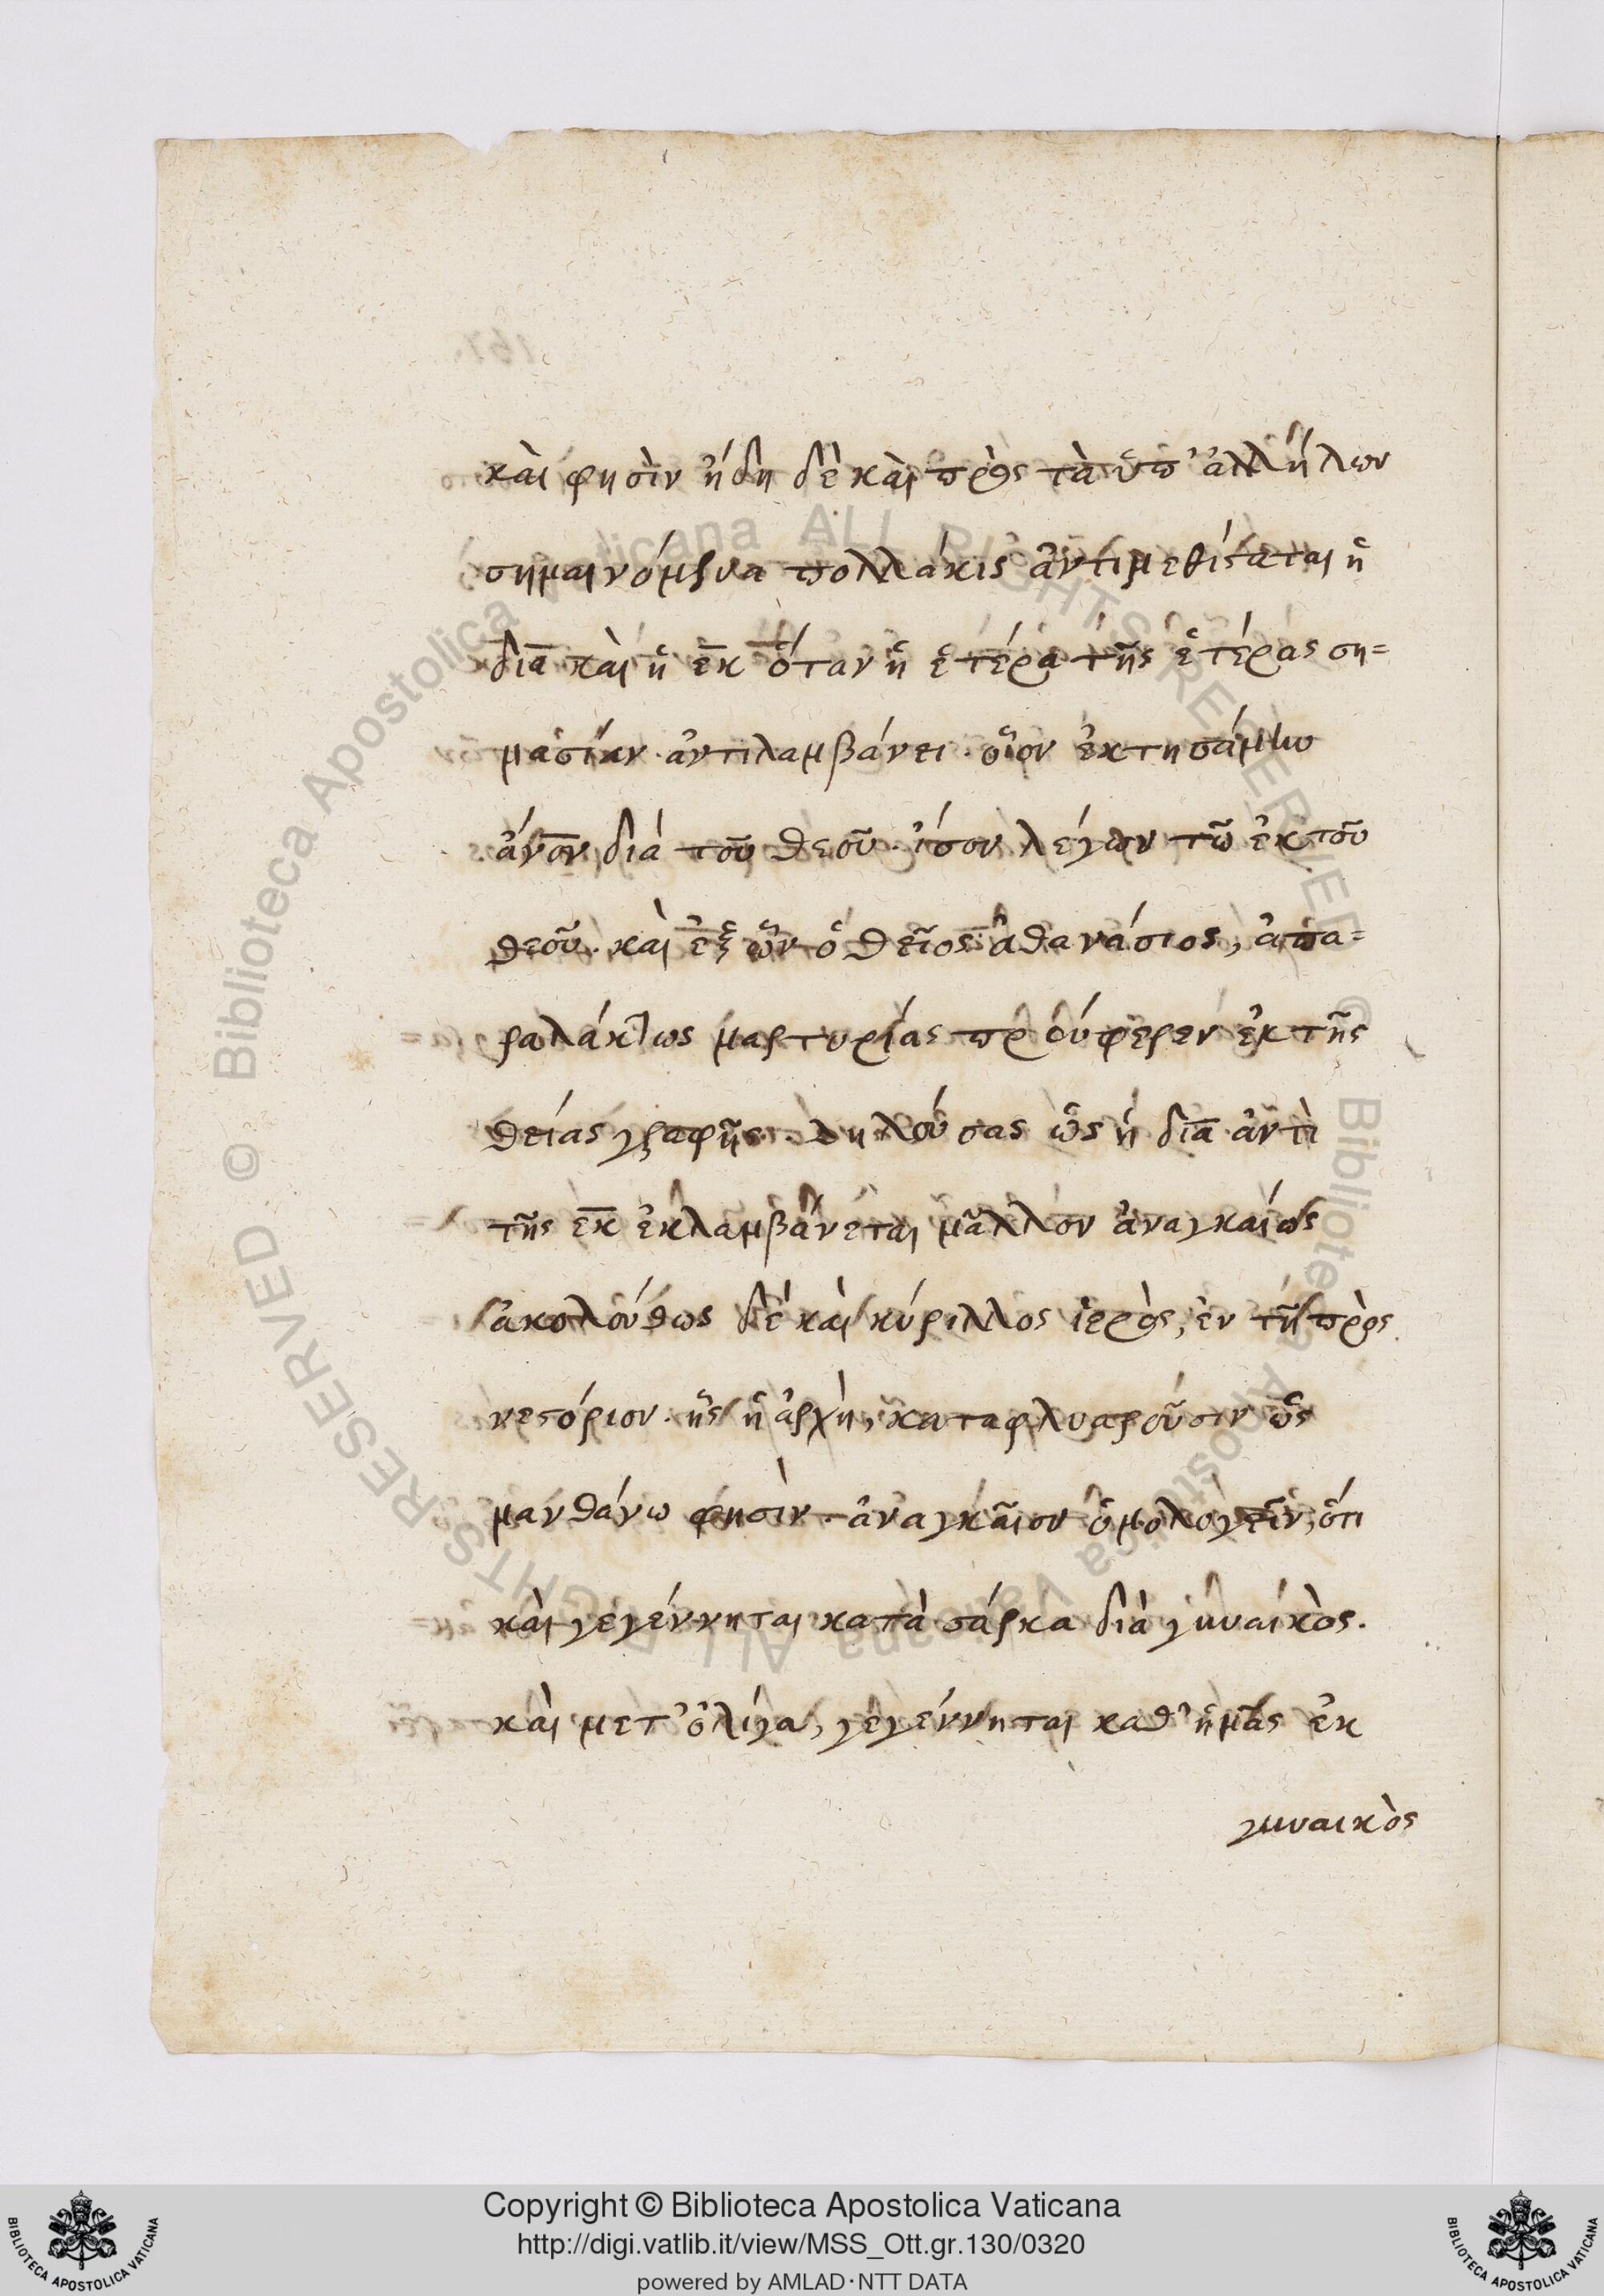 καὶ φησὶν ἤδη δὲ καὶ πρὸς τὰ ὑπ' ἀλλήλων
σημαινόμενα πολλάκις ἀντιμεθίσταται ἡ
δια καὶ ἡ εκ ὅταν ἡ ἑτέρα τῆς ἑτέρας ση=
μασίαν ἀντιλαμβάνει. οἷον ἐκτησάμην
ἄνον διά τοῦ θεοῦ. ἴσον λέγων τῶ ἐκ τοῦ
θεοῦ. καὶ ἐξ ὧν ὁ θεῖος ἀθανάσιος, ἀπα=
ραλάκτως μαρτυρίας προύφερεν ἐκ τῆς
θείας γραφῆς. δηλούσας ὡς ἡ δια ἀντὶ
τῆς εκ ἐκλαμβάνεται μᾶλλον ἀναγκαίως
ἀκολούθως δὲ καὶ κύριλλος ἱερὸς, ἐν τῆ πρὸς
νεστόριον. ἧς ἡ ἀρχὴ, καταφλυαροῦσιν ὡς
μανθάνω φησὶν. ἀναγκαῖον ὁμολογεῖν, ὅτι
καὶ γεγέννηται κατὰ σάρκα διὰ γυναικὸς.
καὶ μετ' ὀλίγα, γεγέννηται καθ' ἡμᾶς ἐκ
γυναικὸς
Copyright © Biblioteca Apostolica Vaticana
http://digi.vatlib.it/view/MSS_Ott.gr.130/0320
powered by AMLAD·NTT DATA
BIBLIOTECA APOSTOLICA VATICANA
BIBLIOTECA APOSTOLICA VATICANA
© Biblioteca Apostolica Vaticana ALL RIGHTS RESERVED
© Biblioteca Apostolica Vaticana ALL RIGHTS RESERVED